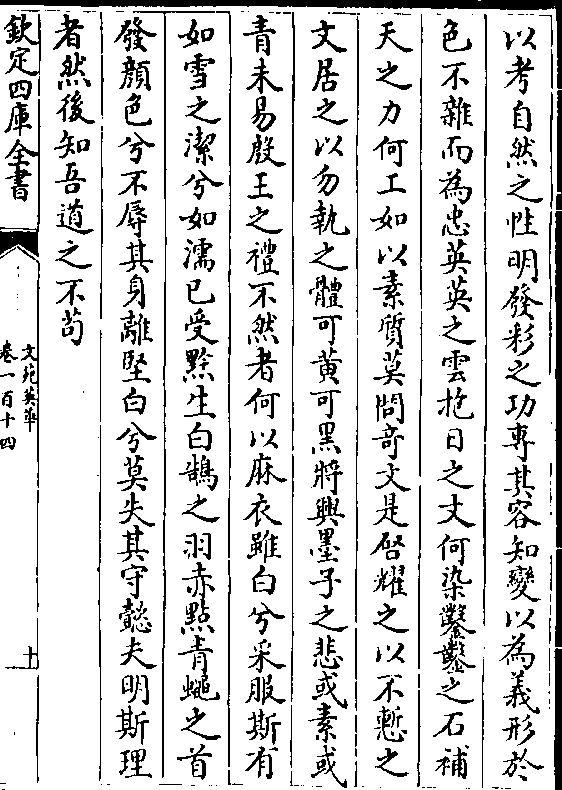 以考自然之性明發彩之功專其容知變以為義形於
色不雜而為忠英英之雲抱日之丈何染鑿鑿之石補
天之力何工如以素質莫問奇文是啓耀之以不慙之
文居之以勿執之體可黄可黑將興墨子之悲或素或
青未易殷王之禮不然者何以麻衣雖白兮采服斯有
如雪之潔兮如濡已受黥生白鵠之羽赤點青蠅之首
發顔色兮不辱其身離堅白兮莫失其守懿夫明斯理
者然後知吾道之不苟
欽定四庫全書
文苑英華
卷一百十四
十